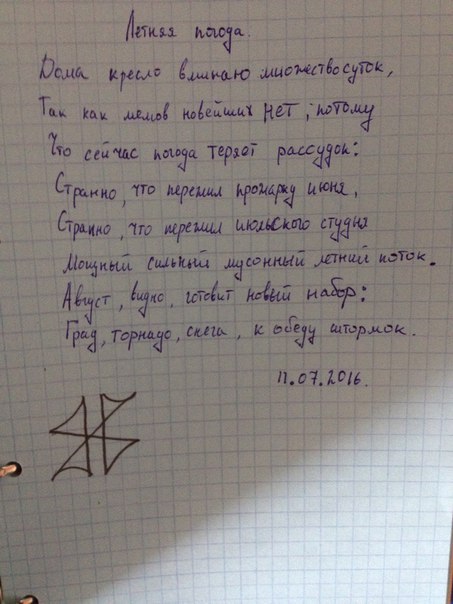 Летняя погода.
Дома кресло влипаю множество суток,
Так как мемов новейших нет, потому
Что сейчас погода теряет рассудок:
Странно, что пережил прожарку июня,
Странно, что пережил июльского студня
Мощный сильный муссонный летний поток.
Август, видно, готовит новый набор:
Град, торнадо, снега, к обеду штормок.
11.07.2016.